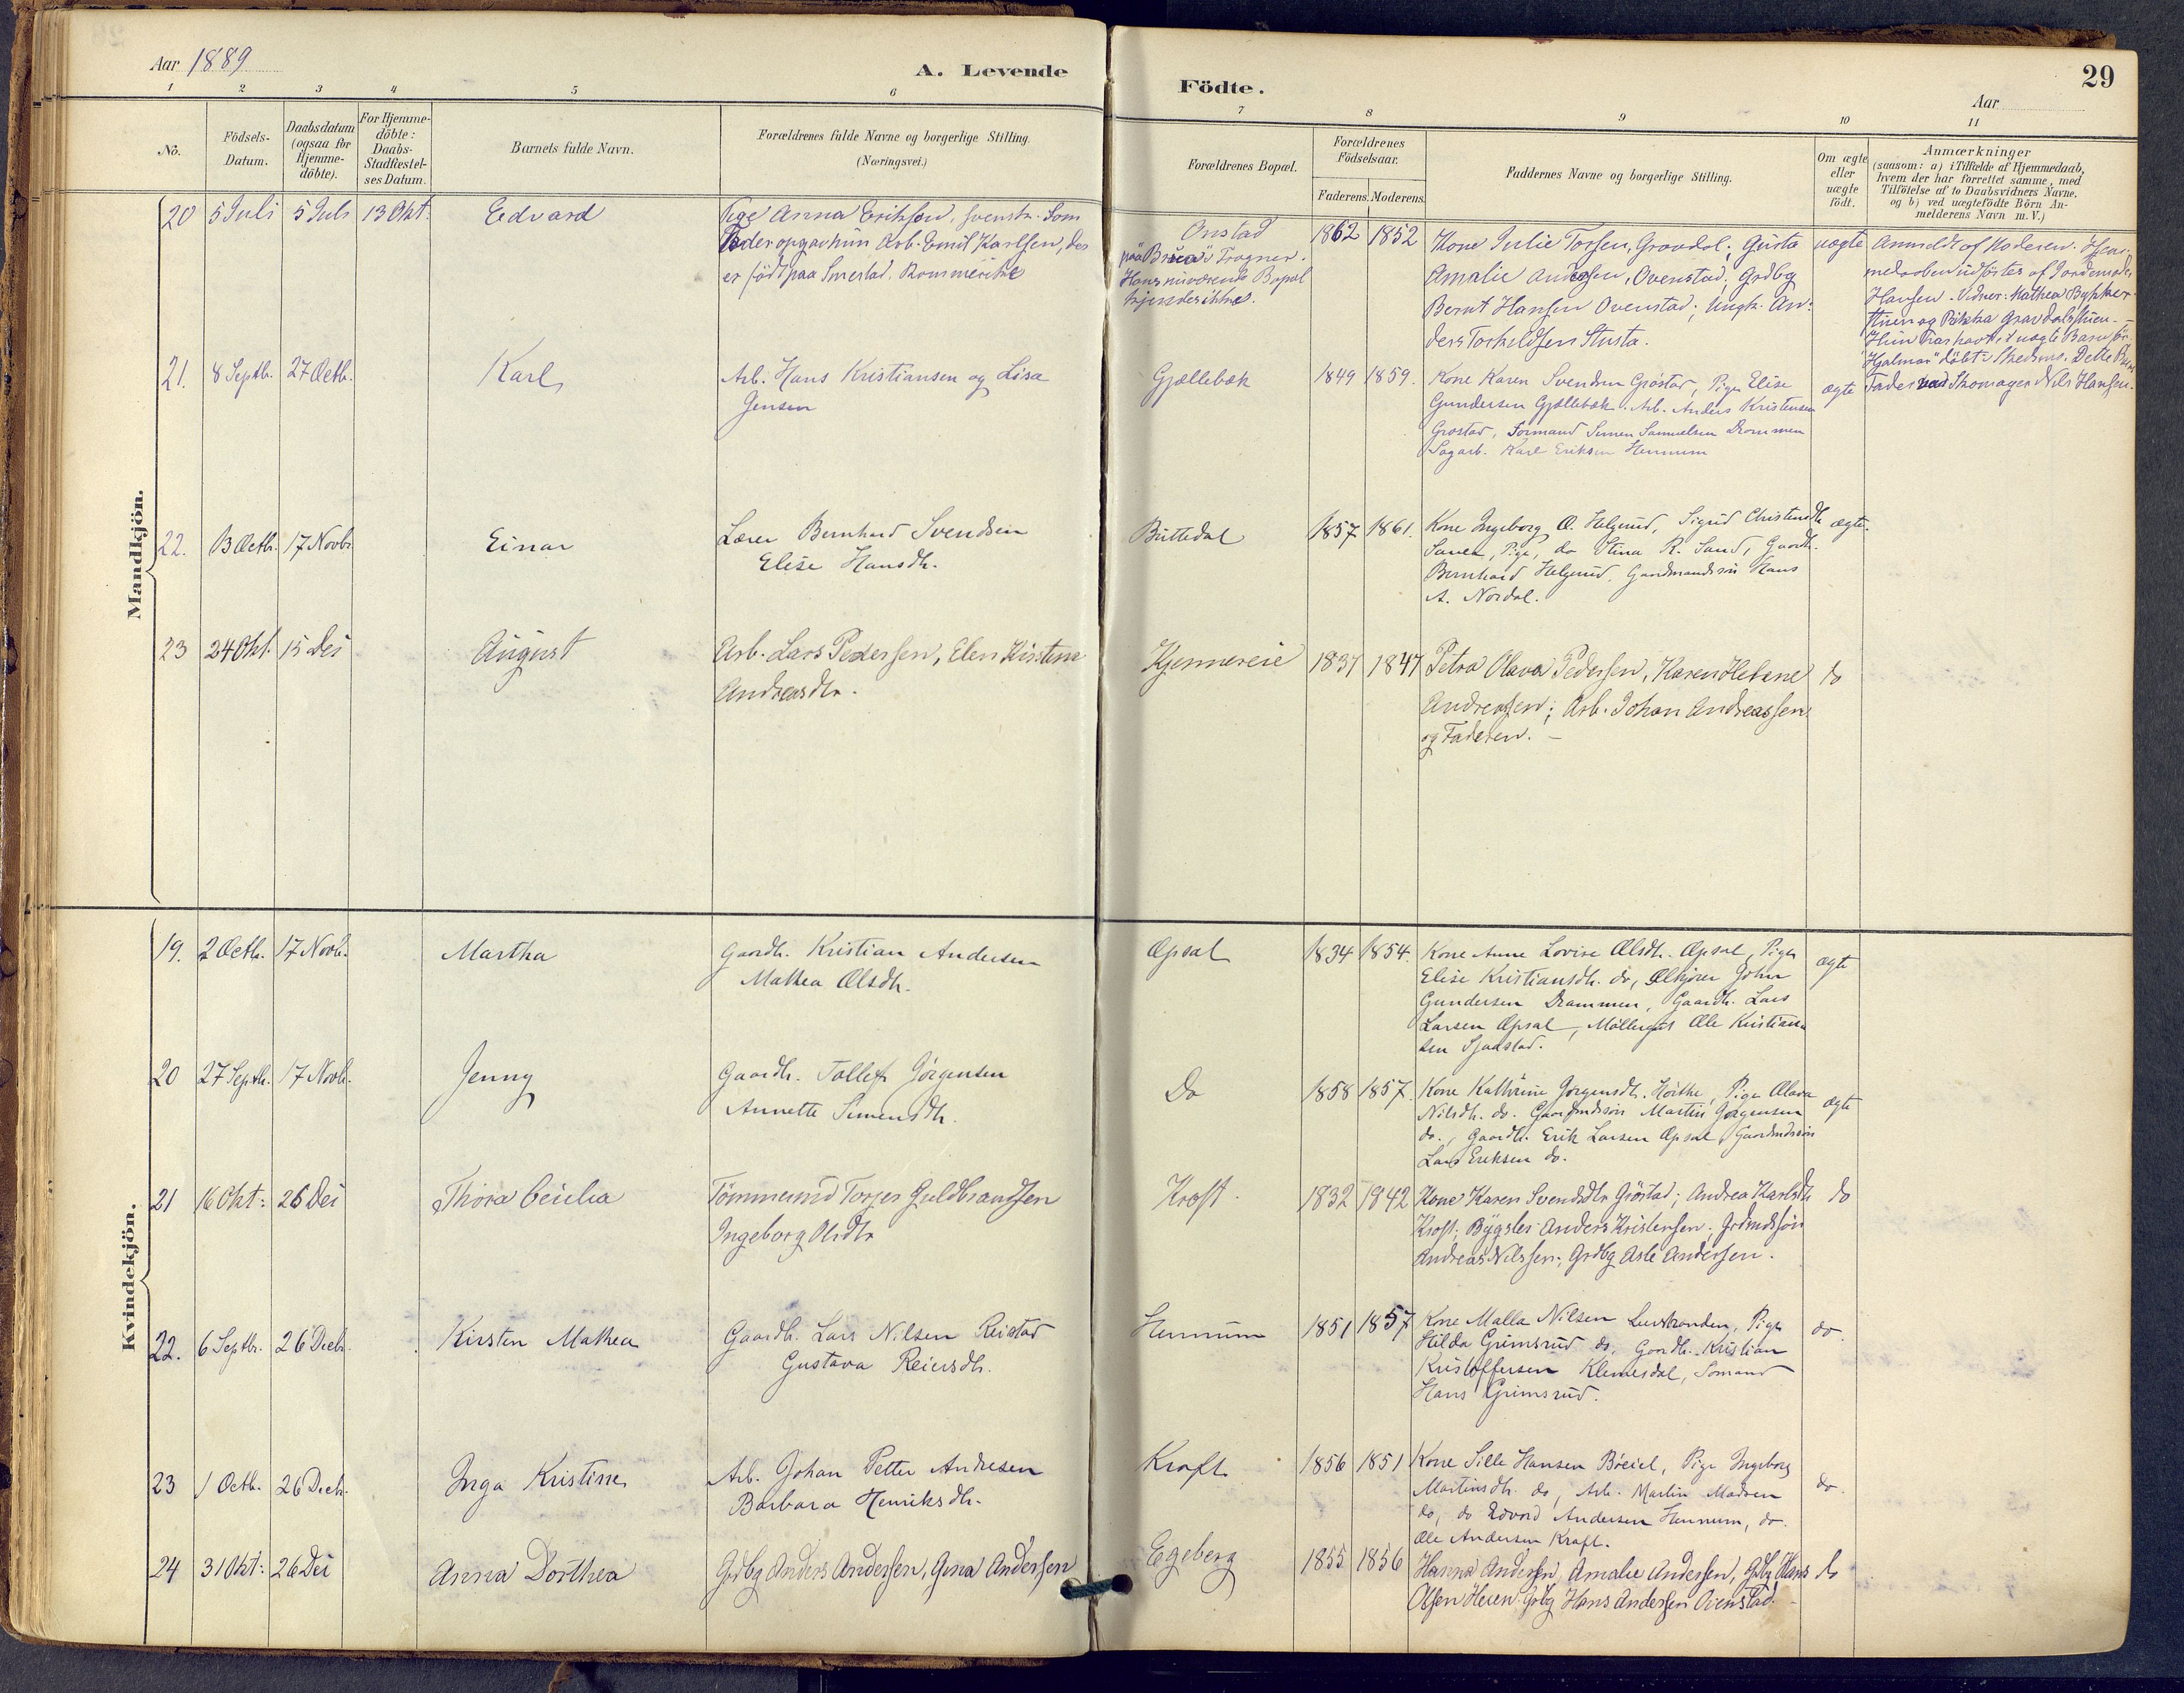 Aar 1889
A. Levende
Födte.
29
Aar
1 2 3 4 5 6 7 8 9 10 11
No.
Födsels-
Datum.
Daabsdatum
(ogsaa for
Hjemme-
döbte).
For Hjemme-
döbte:
Daabs-
Stadfæstel-
ses Datum.
Barnets fulde Navn.
Forældrenes fulde Navne og borgerlige Stilling.
(Næringsvei.)
Forældrenes Bopæl.
Forældrenes
Födselsaar.
Faderens. Moderens.
Faddernes Navne og borgerlige Stilling.
Om ægte
eller
uægte
födt.
Anmærkninger
(saasom: a) i Tilfælde af Hjemmedaab,
hvem der har forrettet samme, med
Tilföielse af to Daabsvidners Navne,
og b) ved uægtefödte Börn An-
melderens Navn m. V.)
Mandkjön.
20 5 Juli 5 Juli 13 Okt. Edvard
Pige Anna Eriksen, svensk. Som
Fader opgav hun Arb. Emil Karlsen, der
er född paa Smestad. Rommerike
Onstad
paa Tragner.
Hans nuværende Bopæl
kjendes ikke.
1862 1852
Kone Julie Torsen, Gravdal; Gusta
Amalie Andersen, Ovenstad; Grdbg
Bernt Hansen Ovenstad; Ungk. An-
ders Torkeldsen Stusta.
uægte
Anmeldt af Moderen. Hjem-
medaaben udförtes af Jordemoder
Hansen. Vidner: Mathea
og Rikka
Hun har havt 1 uægte Barn för
"Hjalmar" döbt i Skedsmo. Dette Barns
Fader var Skomager Nils Hansen.
21. 8 Septb. 27 Octb. Karl
Arb. Hans Kristiansen og Lisa
Jensen
Gjellebæk 1849 1859.
Kone Karen Svendsen Gröstad, Pige Elise
Gundersen Gjellebæk. Arb. Anders Kristensen
Grostad, Formand Simen Samuelsen Drammen
Sagarb. Karl Eriksen Hennum
ægte
22. 13 Octb. 17 Novb. Einar
Lærer Bernhard Svendsen
Elise Hansdtr.
Buttedal 1857 1861.
Kone Ingeborg O. Helgerud, Sigrid Christensdtr
Pige, do Stina R. Sand, Gaardb.
Bernhard Helgerud, Gaardmandssön Hans
A. Nordal.
ægte
23 24 Okt. 15 Des August
Arb. Lars Pedersen, Elen Kirstine
Andreasdtr.
Kjennereie 1837 1847
Petra Olava Pedersen, Karen Helene
Andreasen; Arb. Johan Andreassen
og Faderen.
do
Kvindekjön.
19. 2 Octb. 17 Novb. Martha
Gaardb. Kristian Andersen
Mathea Olsdtr.
Opsal 1834 1854.
Kone Anne Lovise Olsdtr. Opsal, Pige
Elise Kristiansdtr. do, John
Gundersen Drammen, Gaardb. Lars
Larsen Opsal, Möllergut Ole Kristian-
sen Sjaastad.
ægte
20 27 Septb. 17 Novb. Jenny
Gaardb. Tollef Jörgensen
Annette Simensdtr.
Do 1858 1857.
Kone Kathrine Jörgensdtr. Pige Olava
Nilsdtr. do. Gaardmdssön Martin Jörgensen
do., Gaardb. Erik Larsen Opsal, Gaardmdssön
Lars Eriksen do.
ægte
21 16 Okt: 26 Des Thora Cecilia
Tömmermd Torjer Guldbrandsen
Ingeborg Olsdtr
Kroft. 1832 1842
Kone Karen Svendsdtr Gröstad; Andrea Karlsdtr
Kroft. Bygsler Anders Kristensen. Grdmdssön
Andreas Nilssen; Grdbg Asle Andersen.
do
22. 6 Septbr. 26 Decb. Kirsten Mathea
Gaardb. Lars Nilsen Reistad
Gustava Reiersdtr.
Hennum 1851 1857
Kone Malla Nilsen Lierstranden, Pige
Hilda Grimsrud do. Gaardb. Kristian
Kristoffersen Klemesdal, Sömand
Hans Grimsrud.
do.
23 1 Octb. 26 Decb. Inga Kristine
Arb. Johan Petter Andresen
Barbara Henriksdtr.
Kraft 1856 1851
Kone Sille Hansen Pige Ingeborg
Martinsdtr. do, Arb. Martin Madsen
do, do Edvard Andersen Hennum, do.
Ole Andersen Kraft.
do.
24 31 Okt: 26 Des Anna Dorthea
Grdbg Anders Andersen, Gina Andersen
Egeberg 1855 1856
Hanna Andersen, Amalie Andersen, Grdbg Hans
Olsen Heien, Grdbg Hans Andersen Ovenstad.
do